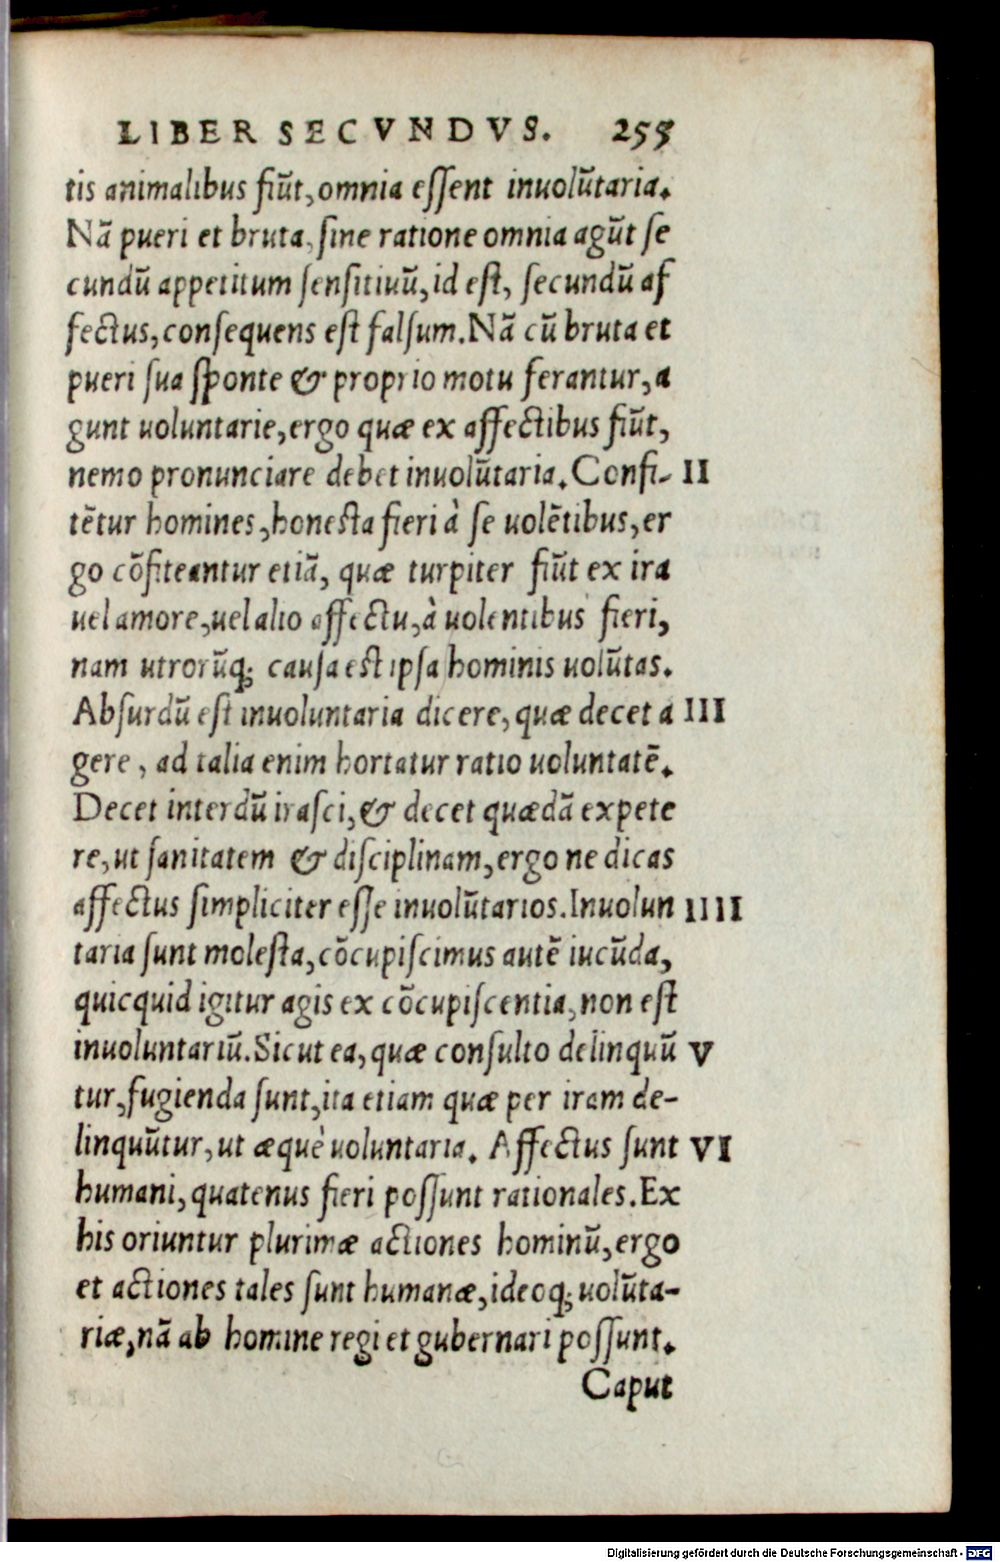 LIBER SECVNDVS. 255
tis animalibus fiũt, omnia eſſent inuolũtaria.
Nã pueri et bruta, ſine ratione omnia agũt ſe
cundũ appetitum ſenſitiuũ, id eſt, ſecundũ af
fectus, conſequens eſt falſum. Nã cũ bruta et
pueri ſua ſponte & proprio motu ferantur, a
gunt uoluntarie, ergo quæ ex affectibus fiũt,
nemo pronunciare debet inuolũtaria. Confi- II
tẽtur homines, honeſta fieri à ſe uolẽtibus, er
go cõfiteantur etiã, quæ turpiter fiũt ex ira
uel amore, uel alio affectu, à uolentibus fieri,
nam utrorũq; cauſa eſt ipſa hominis uolũtas.
Abſurdũ eſt inuoluntaria dicere, quæ decet a III
gere, ad talia enim hortatur ratio uoluntatẽ.
Decet interdũ iraſci, & decet quædã expete
re, ut ſanitatem & diſciplinam, ergo ne dicas
affectus ſimpliciter eſſe inuolũtarios. Inuolun IIII
taria ſunt moleſta, cõcupiſcimus autẽ iucũda,
quicquid igitur agis ex cõcupiſcentia, non eſt
inuoluntariũ. Sicut ea, quæ conſulto delinquũ V
tur, fugienda ſunt, ita etiam quæ per iram de-
linquũtur, ut æquè uoluntaria. Affectus ſunt VI
humani, quatenus fieri poſſunt rationales. Ex
his oriuntur plurimæ actiones hominũ, ergo
et actiones tales ſunt humanæ, ideoq; uolũta-
riæ, nã ab homine regi et gubernari poſſunt.
Caput
Digitalisierung gefördert durch die Deutsche Forschungsgemeinschaft - DFG